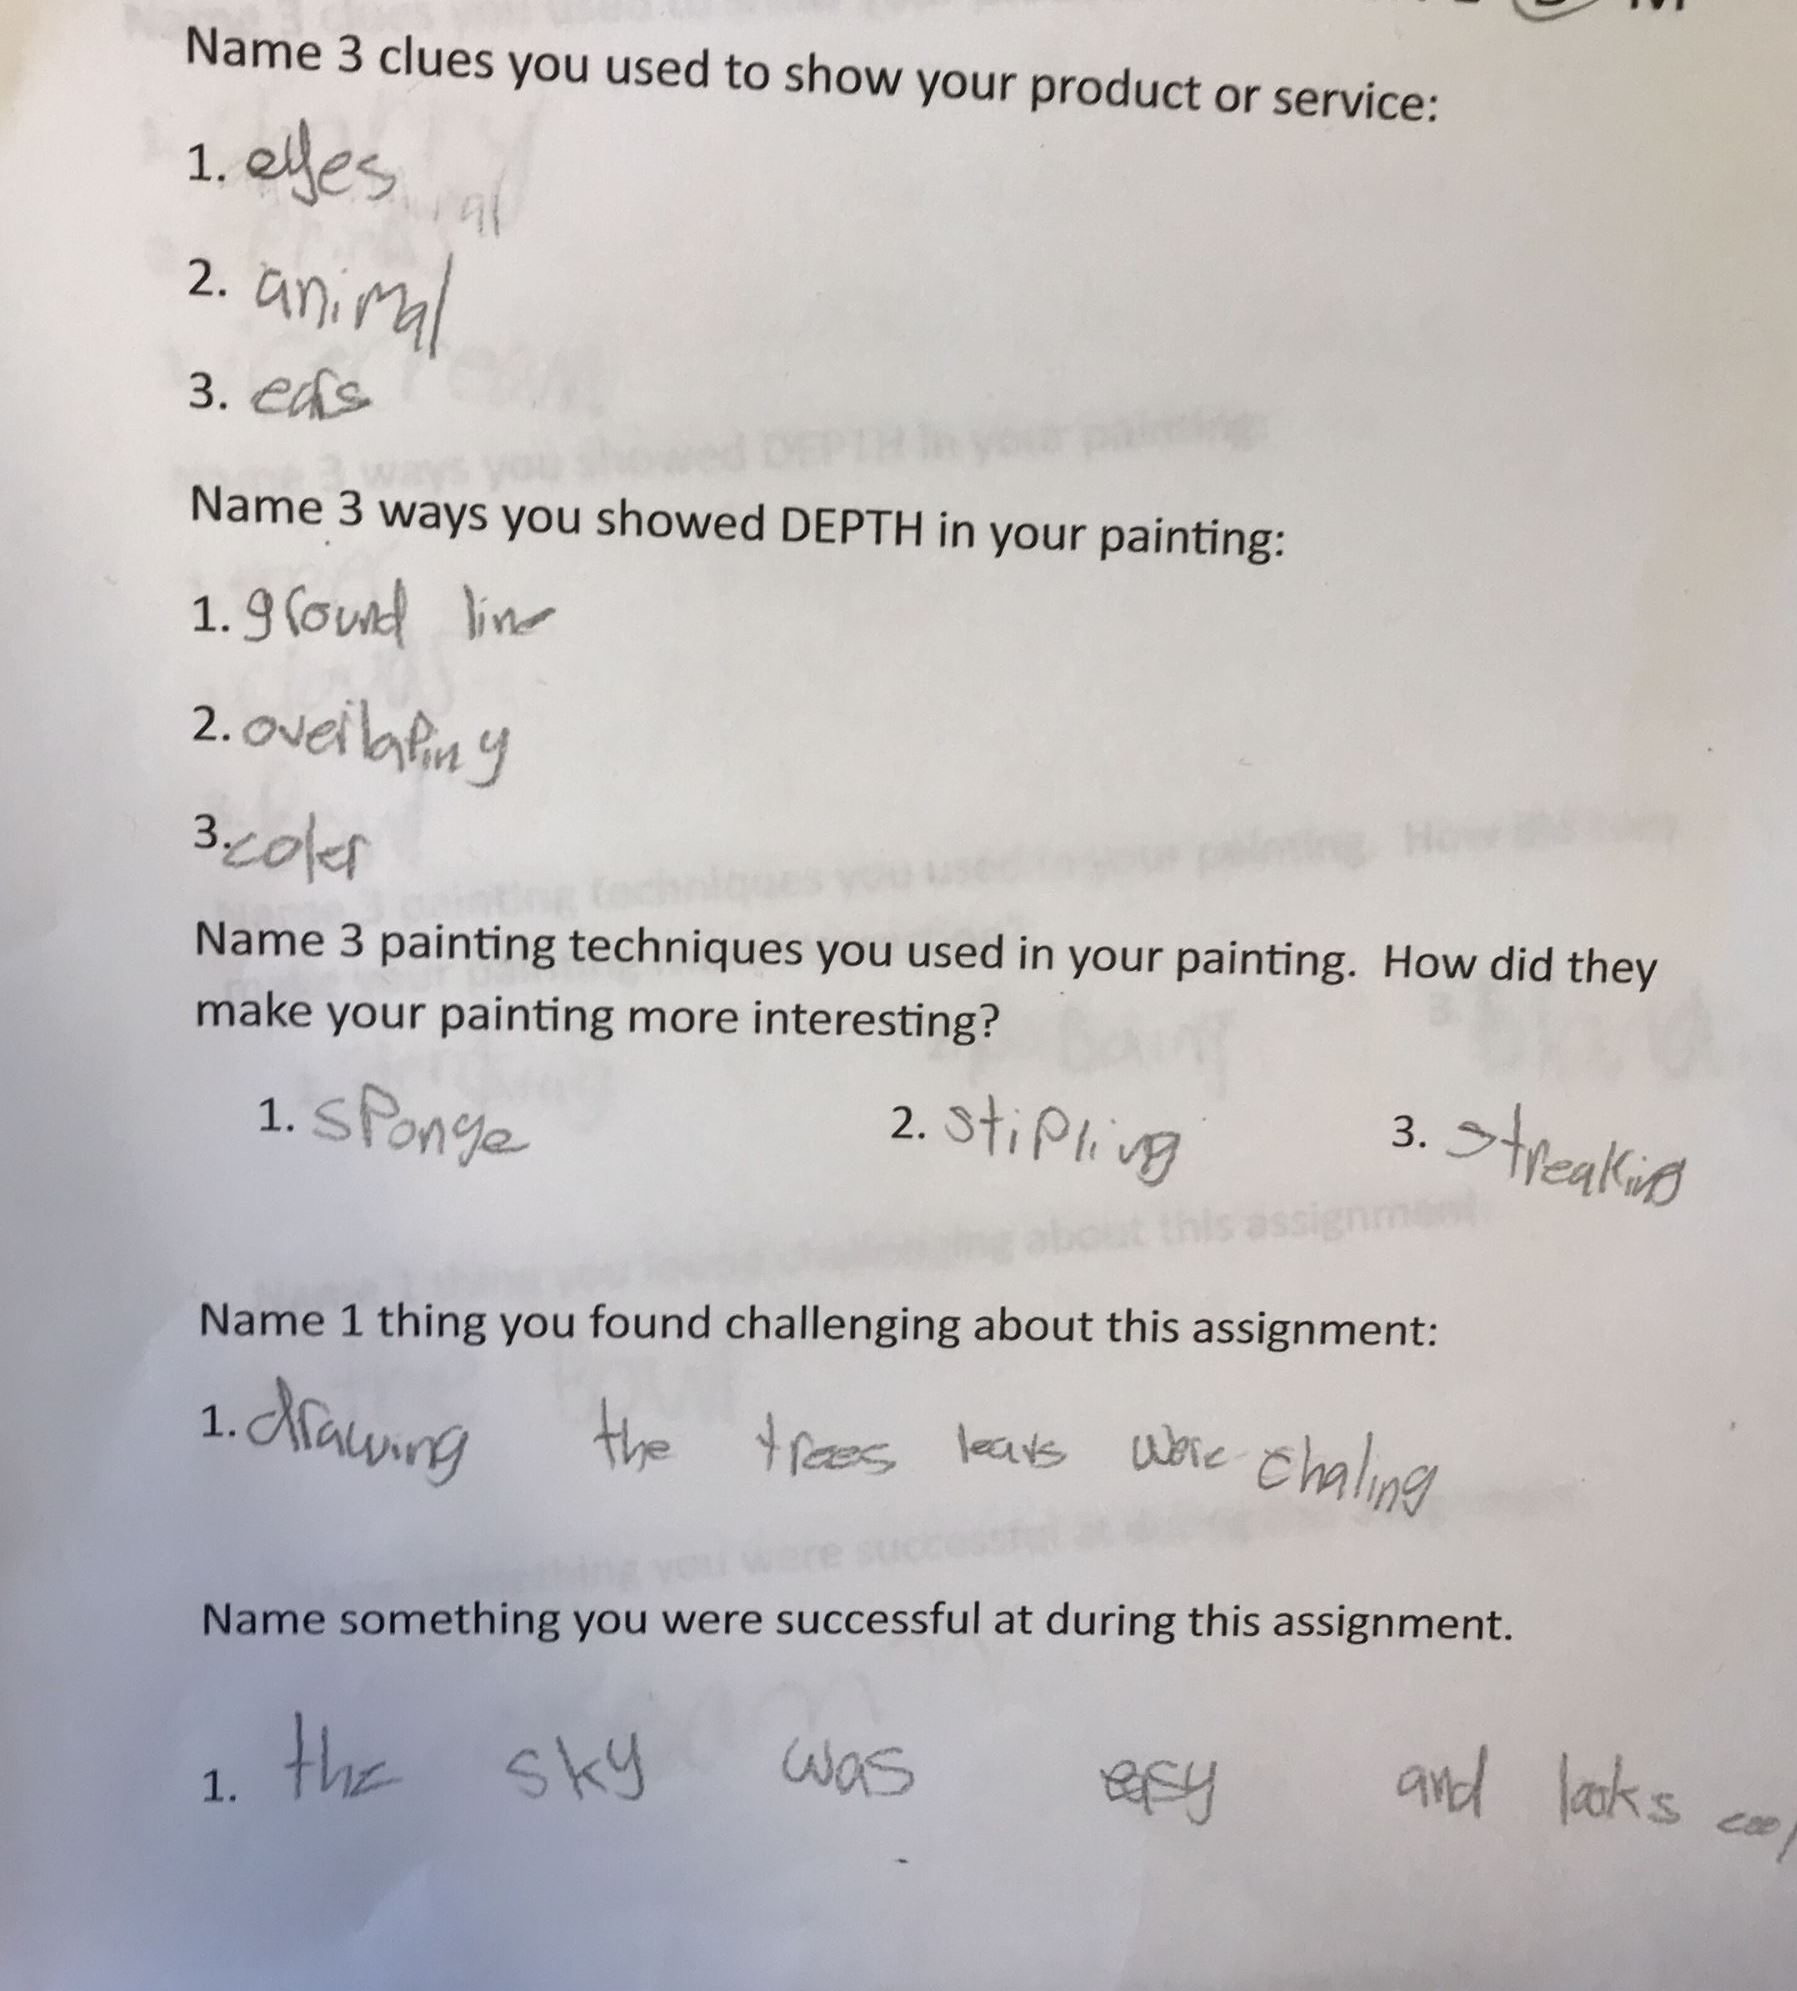 Name 3 clues you used to show your product or service:
1. eyes
2. animal
3. ears
Name 3 ways you showed DEPTH in your painting:
1. ground line
2. overlaping
3. coler
Name 3 painting techniques you used in your painting. How did they
make your painting more interesting?
1. sponge 2. stipling 3. streaking
Name 1 thing you found challenging about this assignment:
1. drawing the trees leavs were chaling
Name something you were successful at during this assignment.
1. the sky was easy and looks cool